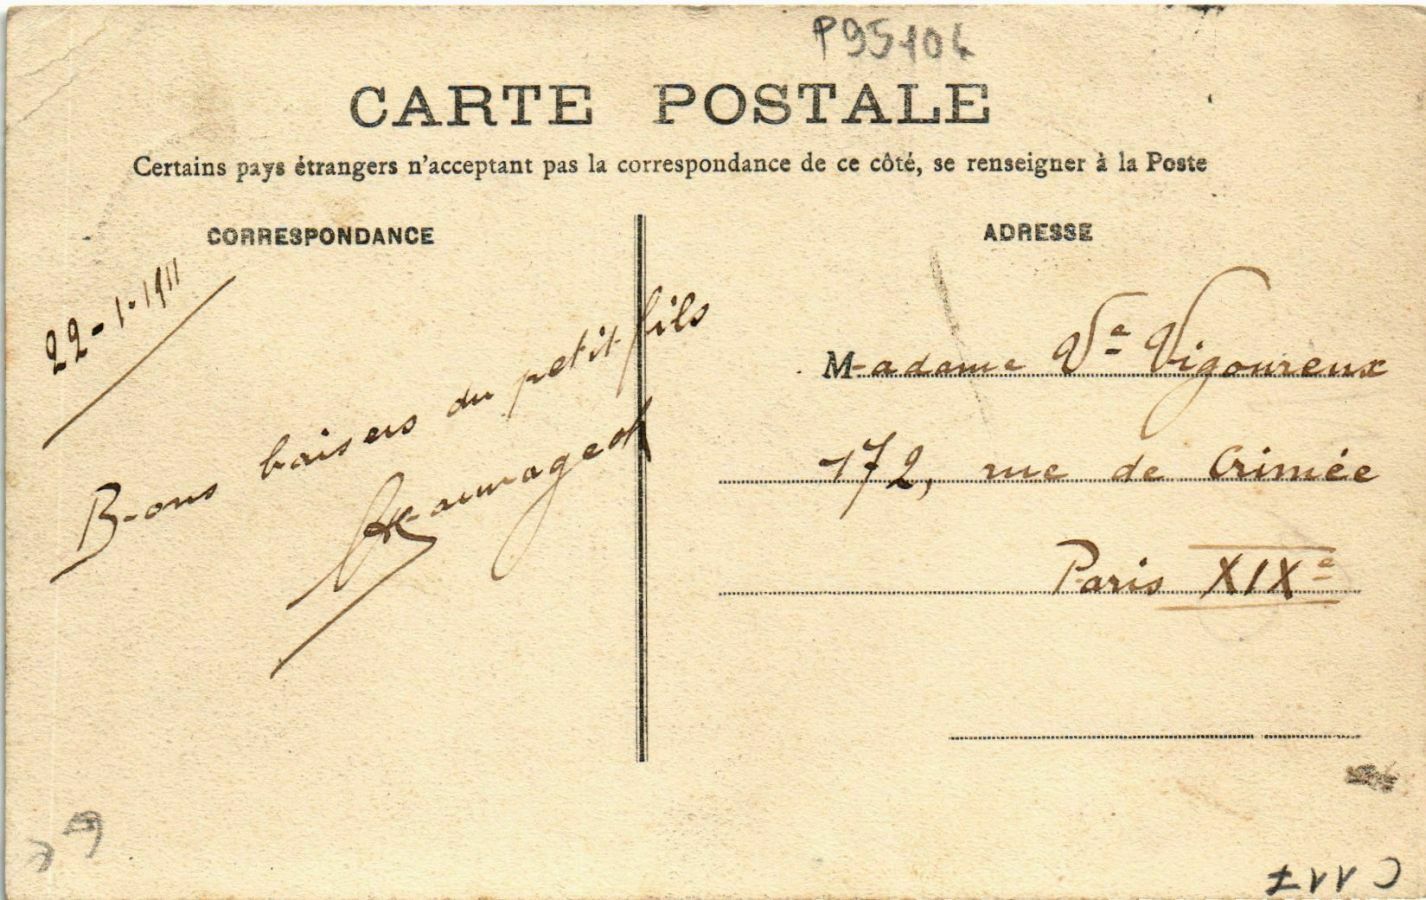 P95106
CARTE POSTALE
Certains pays étrangers n'acceptant pas la correspondance de ce côté, se renseigner à la Poste
CORRESPONDANCE
22-1-1911
Bons baisers du petit fils
ADRESSE
Madame Vᵉ Vigoureux
172, rue de Crimée
Paris XIXᵉ